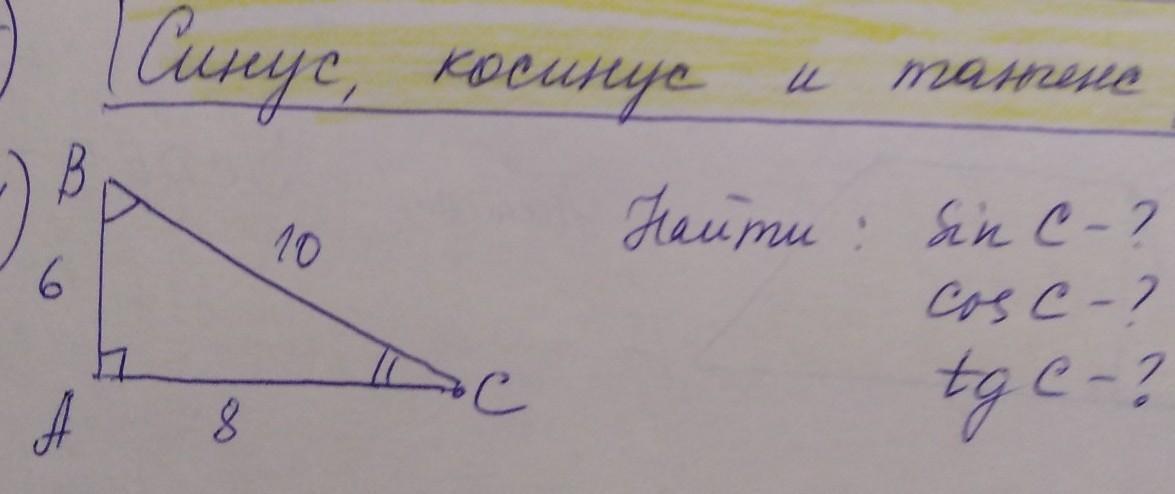 Синус, косинус и тангенс
B
10
Найти: Sin C - ?
6
cos C - ?
tg C - ?
A
8
C